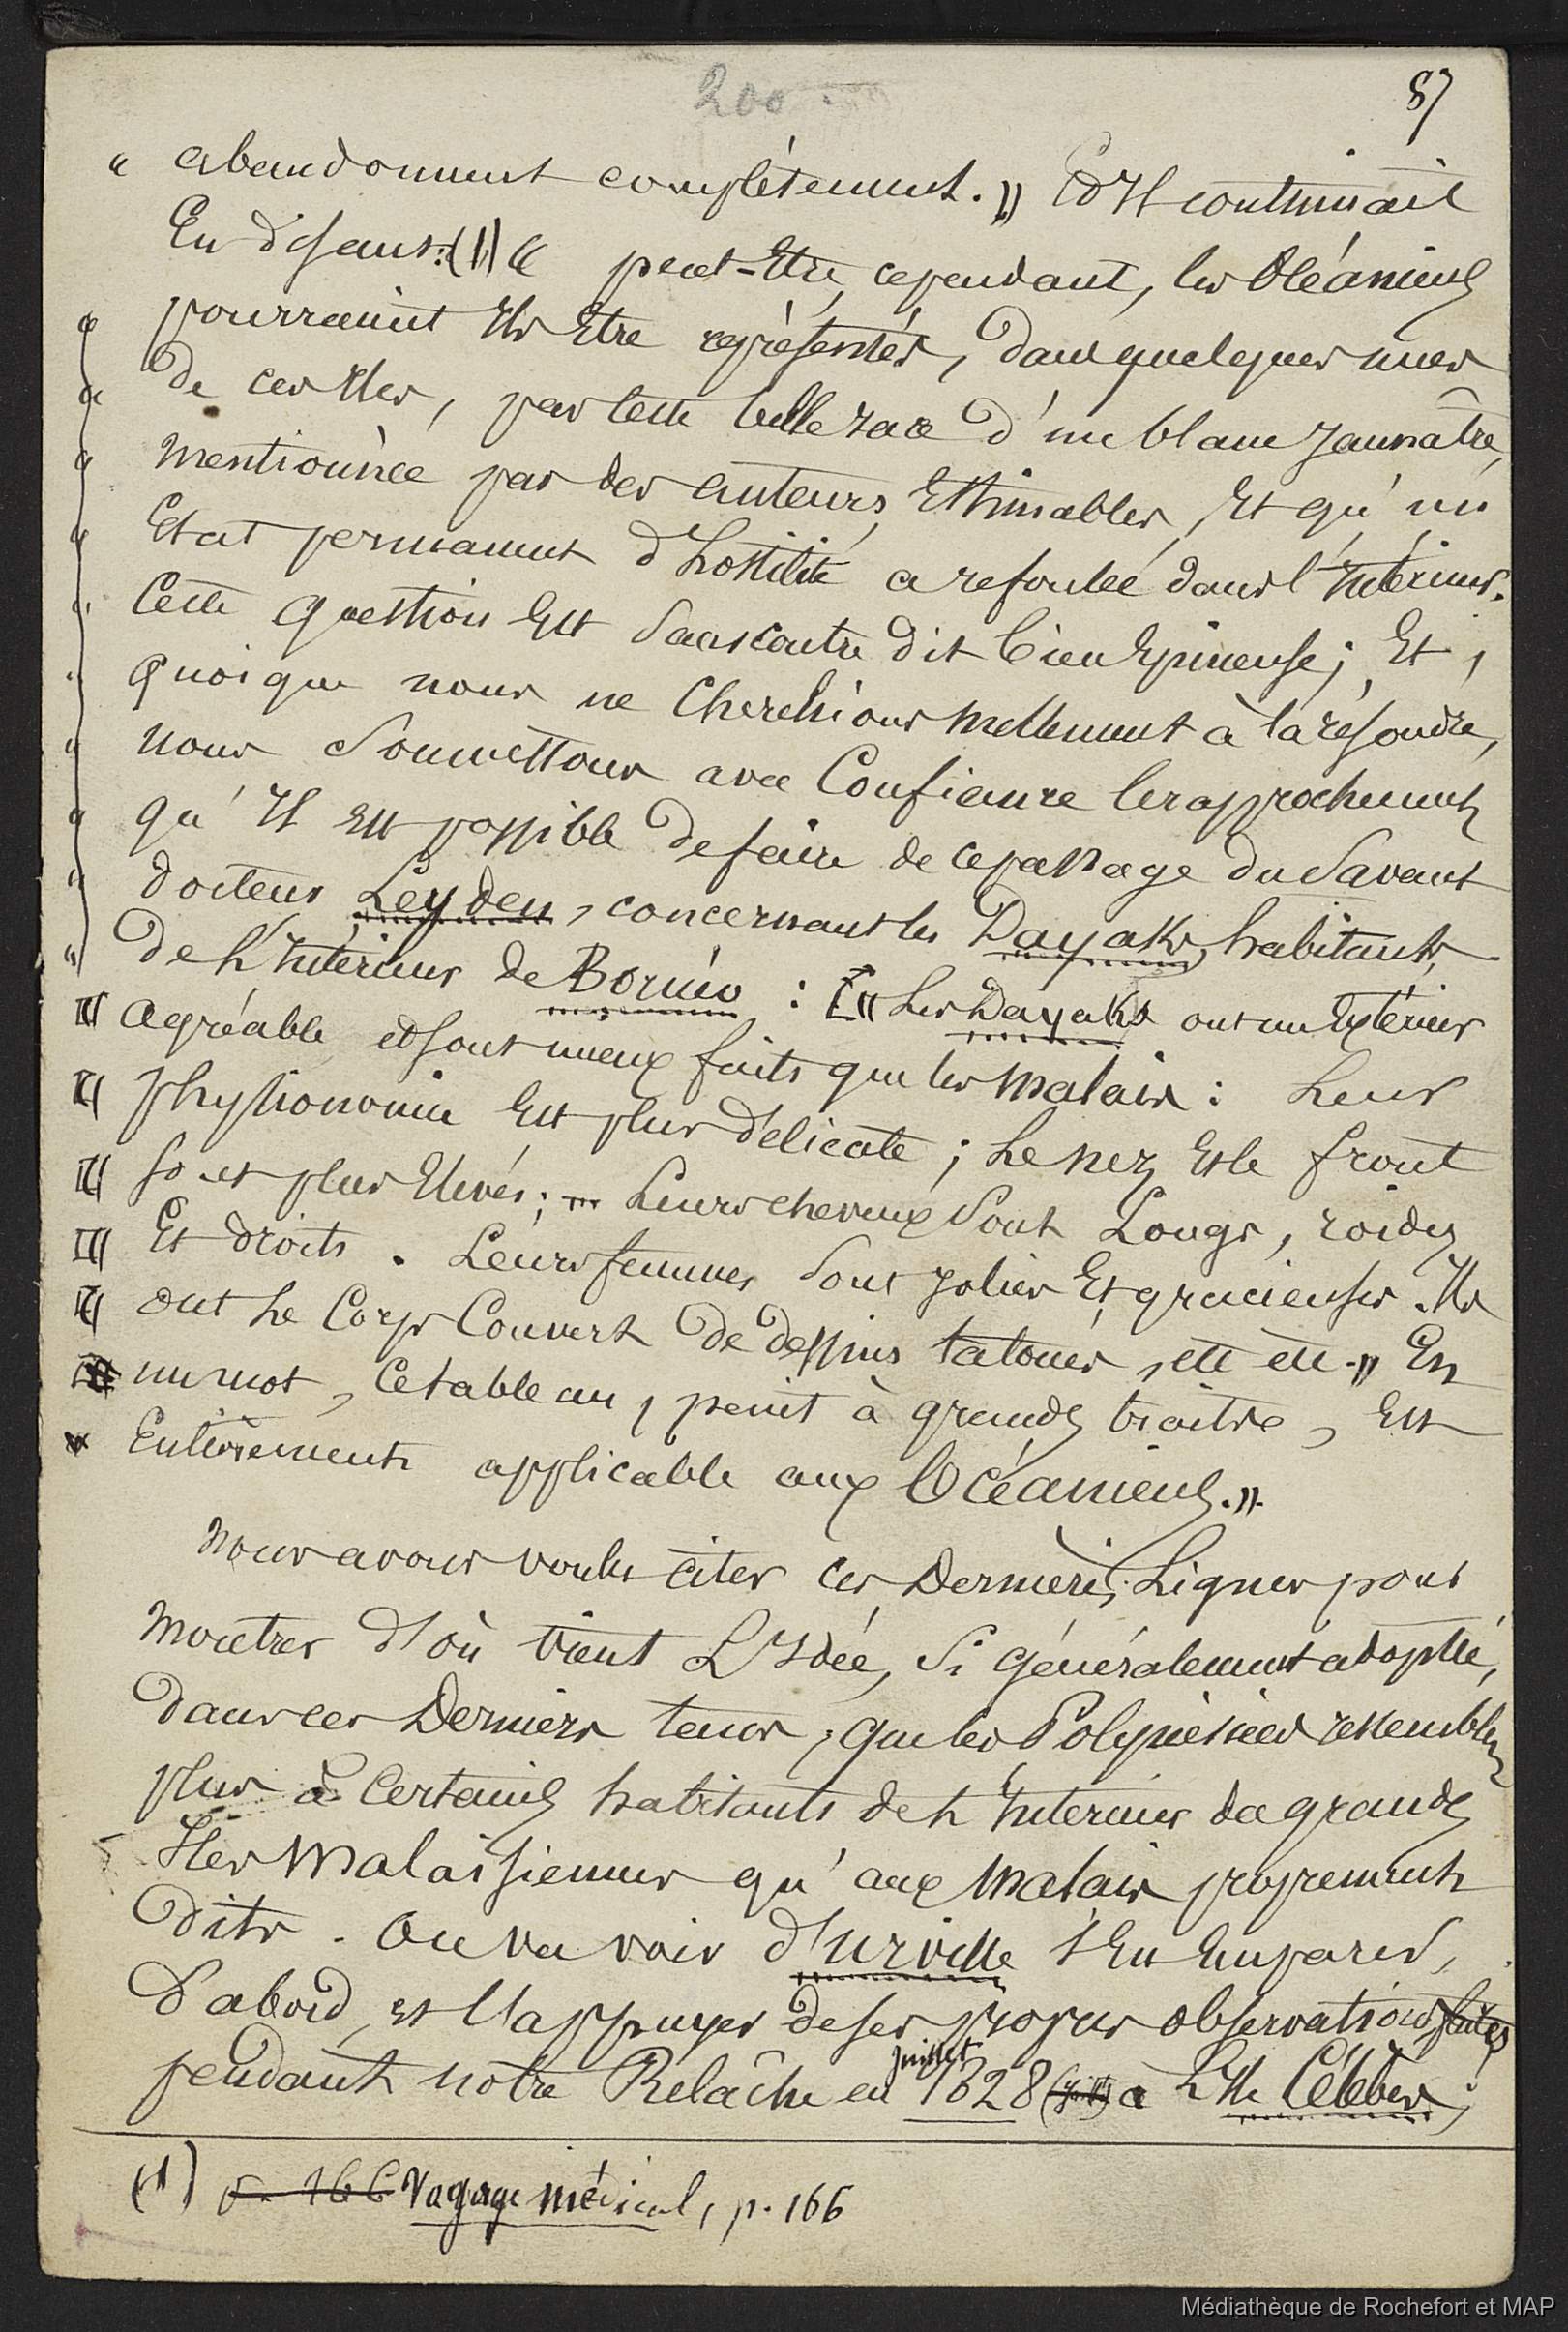 200
87
« abandonnent complétement. » Et Il continuait
En disant: (1) « peut-Etre, cependant, les Océaniens
« pourraient Ils Etre représentés, dans quelques unes
« de ces Iles, par cette belle race d'un blanc jaunatre,
« mentionnée par des auteurs Estimables, Et qu'un
« Etat permanent d'hostilité a refoulée dans l'Intérieur.
« Cette question Est Sans contre dit bien Epineuse; Et,
« quoique nous ne Cherchions nullement à la résoudre,
« nous Soumettons avec Confiance les rapprochements
« qu'Il Est possible de faire de ce passage du Savant
« docteur Leyden, concernant les Dayaks, habitants
« De L'Intérieur de Bornéo : [« Les Dayaks ont un Extérieur
[« agréable et sont mieux faits que les Malais : Leur
[« physionomie Est plus délicate ; Le nez Et le front
[« sont plus Elevés ; Leurs cheveux Sont Longs, roides
[« Et droits. Leurs femmes Sont jolies Et gracieuses. Ils
[« ont Le Corps Couvert De dessins tatoués, etc etc. » En
un mot, Ce tableau, peint à grands traits, Est
« Entièrement applicable aux Océaniens. ».
Nous avons voulu citer ces Dernières Lignes pour
Montrer d'où vient L'Idée, Si généralement adoptée,
Dans ces Derniers tems, que les Polynésiens ressemblent
plus à Certains habitants de L'Intérieur des grandes
Iles Malaisiennes qu'aux Malais proprement
Dits. On va voir d'Urville S'En Emparer,
D'abord, et L'appuyer de ses propres observations faites
pendant notre Relâche en Juillet 1828 à L'Ile Célèbes ;
(1) p. 166 Voyage médical, p. 166
Médiathèque de Rochefort et MAP